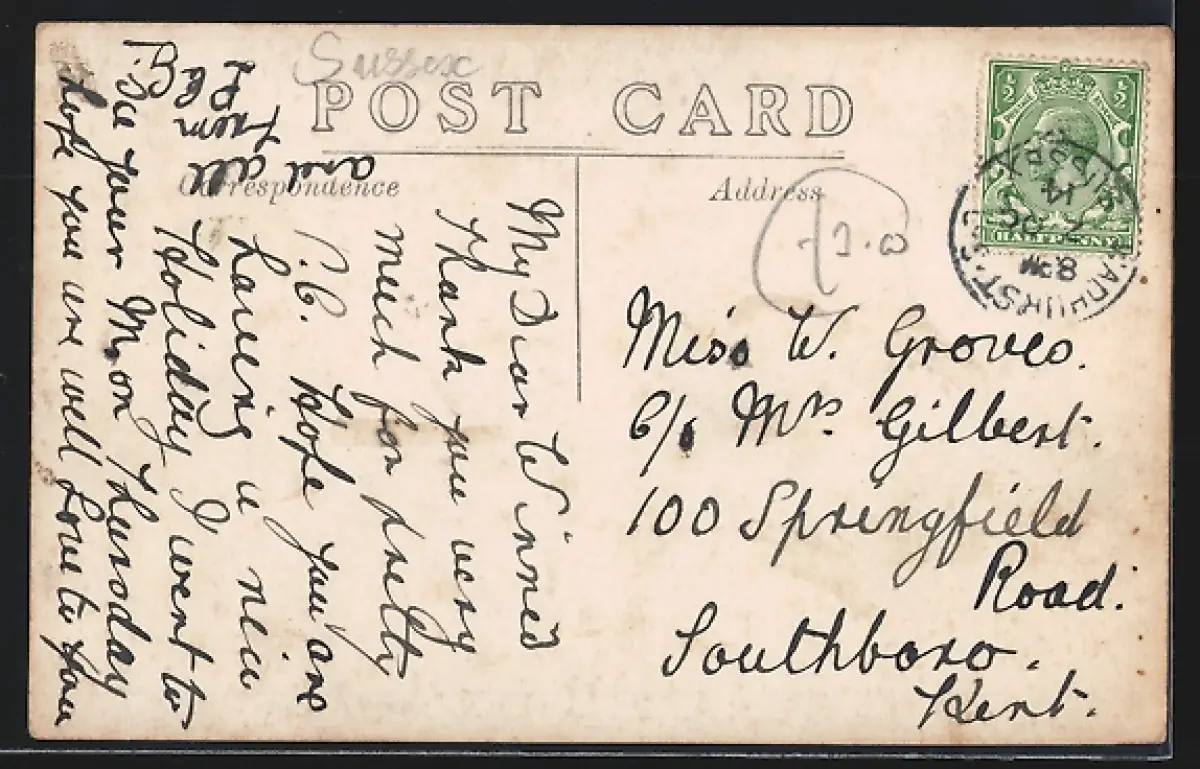 Sussex
POST CARD
Correspondence
Address
½ ½
HALFPENNY
8 PM
2 OC
14
SUSSEX
My Dear Winnie
Thank you very
much for pretty
P.C. Hope you are
having a nice
Holiday I went to
see your Mon Thursday
hope you are well Love to you
and all
from
Miss W. Groves.
C/o Mrs. Gilbert.
100 Springfield
Road.
Southboro.
Kent.